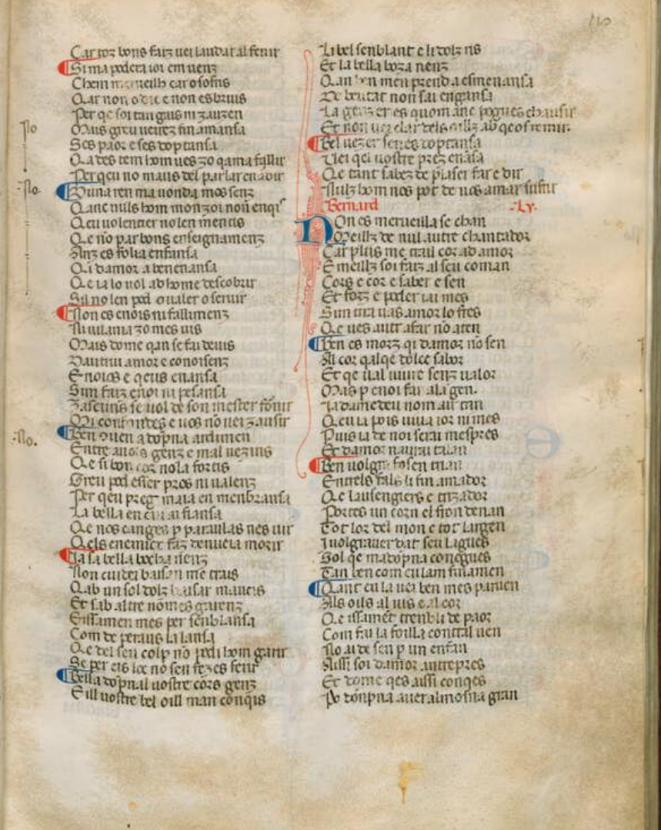 Car toz bons faiz uei laudar al fenir
Si ma podera ioi em uenz
Chem merueilh car o sofris
Car non o dic e non esbruis
Per qe soi tan gaus ni zauzen
Mais greu ueirez fin amansa
Ses paor e ses doptansa
Qades tem hom ues zo qama fallir
Per qeu no maus del parlar enardir
Duna ren ma uonda mos senz
Qanc nuls hom mon zoi non enqis
Qeu uolentier nolen mentis
Qe no par bons enseignamenz
Anz es folia enfansa
Qi damor a benenansa
Qe ia lo uol ad home descobrir
Sil no len pod o ualer o seruir
Non es enois ni fallimenz
Ni uilania zo mes uis
Mais dome qan se fai deuis
Dautrui amor e conoisenz
Enoios e qeus enansa
Sim faiz enoi ni pesansa
Zascuns se uol de son mester formir
Mi confondes e uos no uei zausir
Ben estera a dopna ardimen
Entre auols genz e mal uezins
Qe si bons cor nola fortis
Greu pod esser pros ni ualenz
Per qeu preg maia en menbransa
La bella en cui ai fiansa
Qe nos cange per paraullas nes uir
Qels enemics faz denueia morir
Ja sa bella bocha risenz
Non cuidei baisan me trais
Qab un dolz baisar maucis
Et sab altre nom es guirenz
Eissamen mes per senblansa
Com de peraus la lansa
Qe del seu colp no podi hom garir
Se per eis loc no sen fezes ferir
Bella dopna l uostre cors genz
E ill uostre bel oill man conqis
Li bel senblant e li dolz ris
Et la bella boza nenz
Qan ben men prend a esmenansa
De beutat non sai engansa
La genzer es quom anc pogues chausir
Et non uei clar dels oillz ab qeos remir
Bel uezer senes doptansa
Uei qei uostre prez enansa
Qe tant sabez de plaser far e dir
Nulz hom nos pot de uos amar sufrir
Bernard .Lv.
Non es merueilla se chan
Meillz de nul autre chantador
Car plus me trai l cor ad amor
E meillz soi faiz al seu coman
Cors e cor e saber e sen
Et forz e poder iai mes
Sim tira uas amor lo fres
Qe ues autr afar no aten
Ben es morz qi damor no sen
Al cor qalqe dolce sabor
Et qe ual uiure senz ualor
Mas per enoi far a la gen
Ja damedeu nom air tan
Qeu ia pois uiua ior ni mes
Puis ia de noi serai mespres
Et damor naurai talan
Ben uolgra fosen trian
Entrels fals li fin amador
Qe lausengiers e trizador
Portes un corn el fron denan
Tot lor del mon e tot largen
I uolgrauer dat seu lagues
Sol qe ma dopna conegues
Tan ben com eu lam finamen
Qant eu la uei ben mes paruen
Als oils al uis e al cor
Qe issamet trenbli de paor
Com fai la foilla contral uen
No ai de sen per un enfan
Aissi soi damor antrepres
Et dome qes aissi conqes
Po donpna auer almosna gran